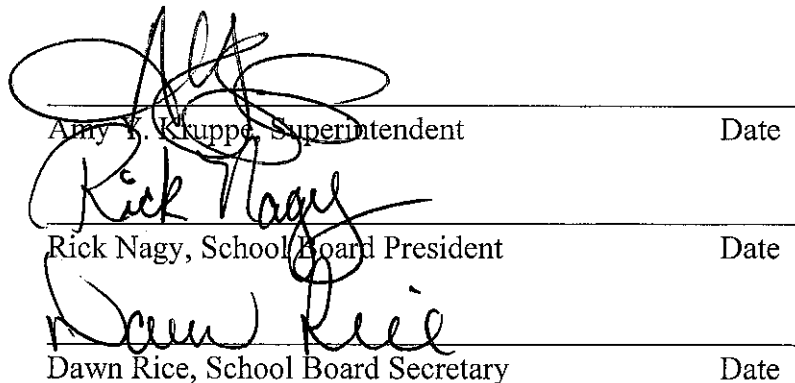 Amy K. Kruppe, Superintendent Date
Rick Nagy
Rick Nagy, School Board President Date
Dawn Rice
Dawn Rice, School Board Secretary Date